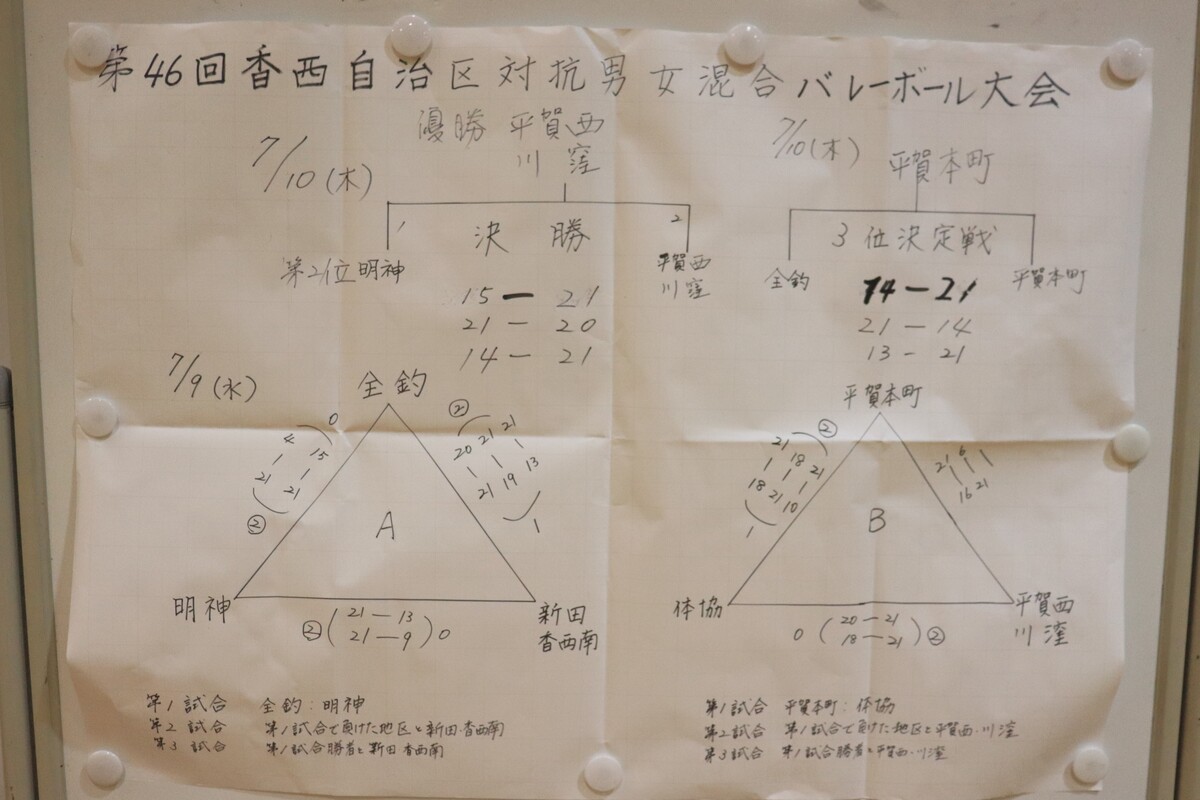 第46回香西自治区対抗男女混合バレーボール大会
優勝 平賀西
川窪
7/10(木)
決勝
1
2
第2位明神
平賀西
川窪
15 ー 21
21 ー 20
14 ー 21
7/10(木)
平賀本町
3位決定戦
全釣
平賀本町
14 ー 21
21 ー 14
13 ー 21
7/9(水)
全釣
0
4 ー 21
15 ー 21
②
②
20 ー 21
21 ー 19
21 ー 13
1
A
明神
新田
香西南
②(21 ー 13
21 ー 9)0
平賀本町
②
21 ー 18
18 ー 21
21 ー 10
1
21 ー 16
6 ー 21
B
体協
平賀西
川窪
0(20 ー 21
18 ー 21)②
第1試合 全釣:明神
第2試合 第1試合で負けた地区と新田・香西南
第3試合 第1試合勝者と新田香西南
第1試合 平賀本町:体協
第2試合 第1試合で負けた地区と平賀西・川窪
第3試合 第1試合勝者と平賀西・川窪